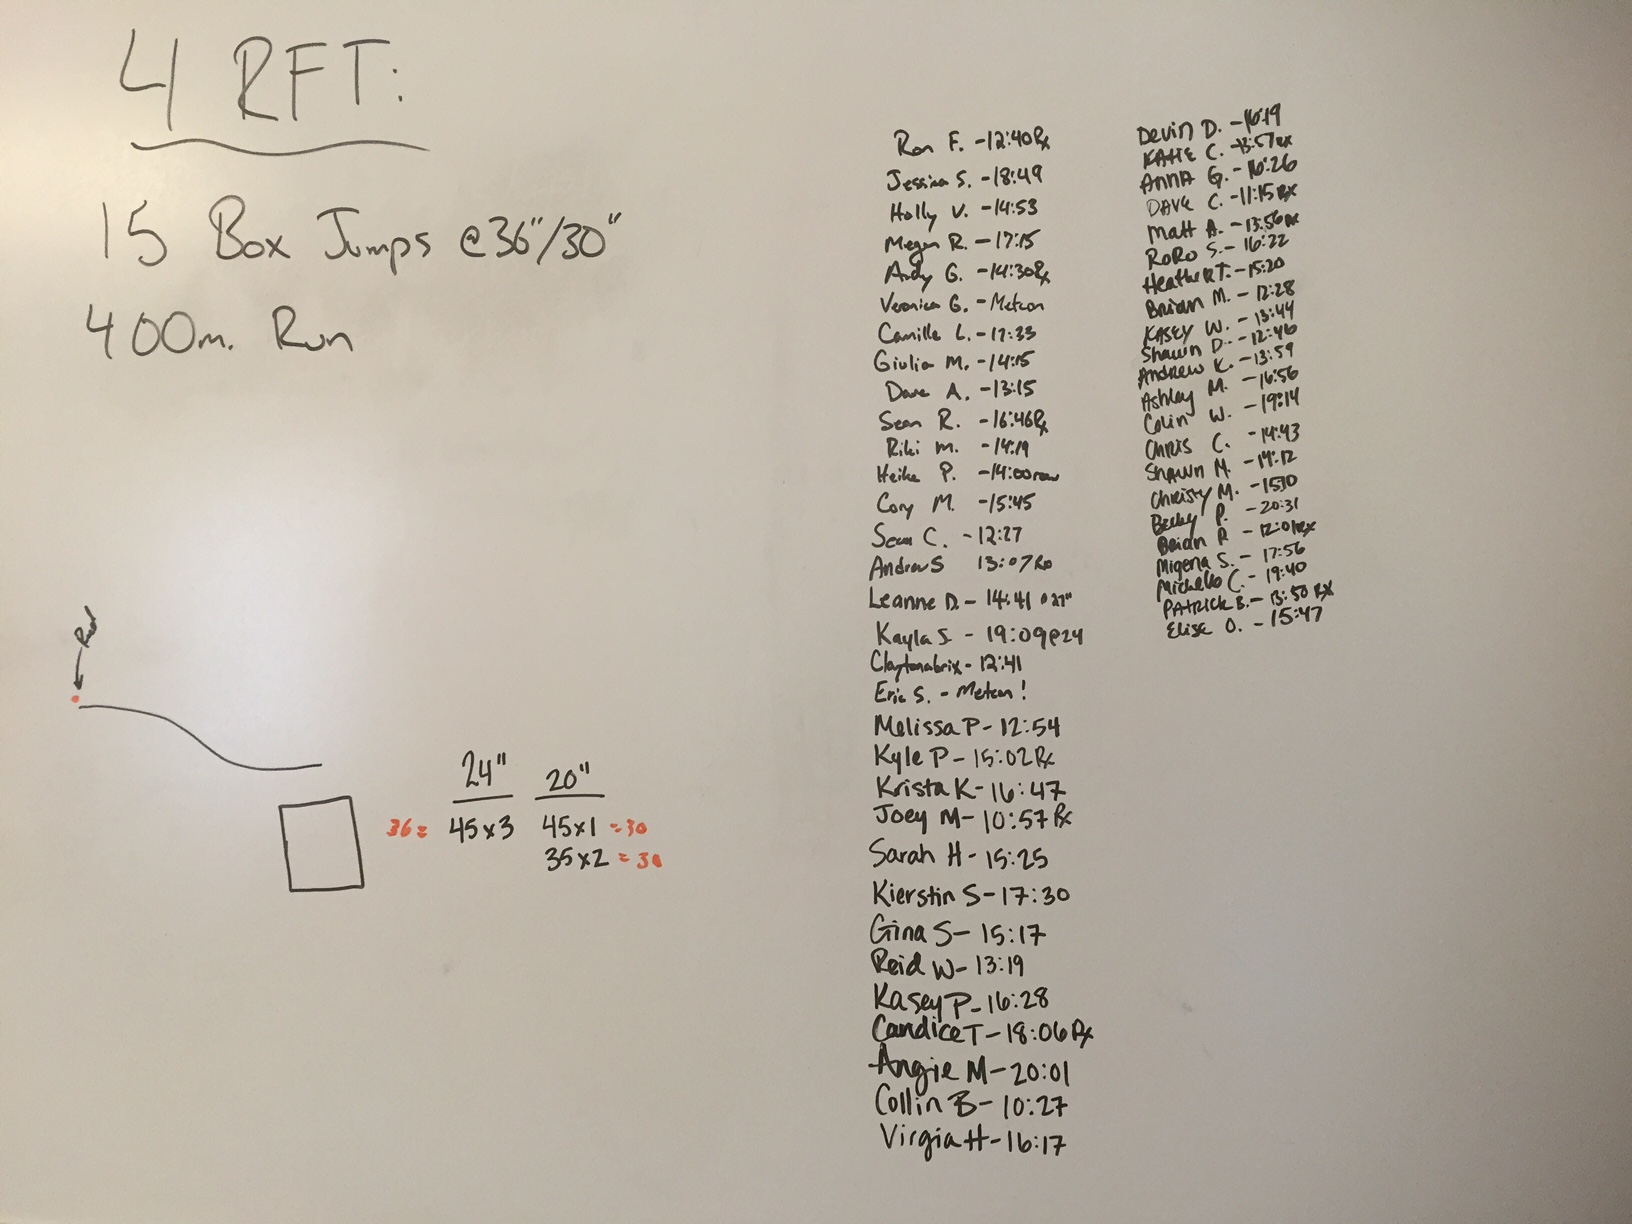 4 RFT:
15 Box Jumps @36"/30"
400m. Run
Red
24" 20"
36= 45x3 45x1 =30
35x2 =30
Ron F. -12:40Rx
Jessica S. -18:49
Holly V. -14:53
Megan R. -17:15
Andy G. -14:30Rx
Veronica G. -Metcon
Camille L. -17:33
Giulia M. -14:15
Dave A. -13:15
Sean R. -16:46Rx
Riki M. -14:19
Heike P. -14:00row
Cory M. -15:45
Sean C. -12:27
Andrew S 13:07Rx
Leanne D. - 14:41
Kayla S - 19:09@24
Claytonabrix - 12:41
Eric S. - Metcon!
Melissa P - 12:54
Kyle P - 15:02Rx
Krista K - 16:47
Joey M - 10:57Rx
Sarah H - 15:25
Kierstin S - 17:30
Gina S - 15:17
Reid W - 13:19
Kasey P - 16:28
Candice T - 18:06Rx
Angie M - 20:01
Collin B - 10:27
Virgia H - 16:17
Devin D. -16:19
KATIE C. -13:57Rx
ANNA G. - 16:26
DAVE C. -11:15Rx
Matt A. -13:56Rx
RoRo S. - 16:22
Heather T. -15:20
Brian M. - 12:28
KASEY W. - 13:44
Shawn D. - 12:46
Andrew K. -13:59
Ashley M. -16:56
Colin W. -19:14
CHRIS C. -14:43
Shawn M. -14:12
Christy M. -1510
Becky P. -20:31
Brian R - 12:01Rx
Migena S. - 17:56
Michelle C. - 19:40
PATRICK B. - 13:50 RX
Elise O. - 15:47